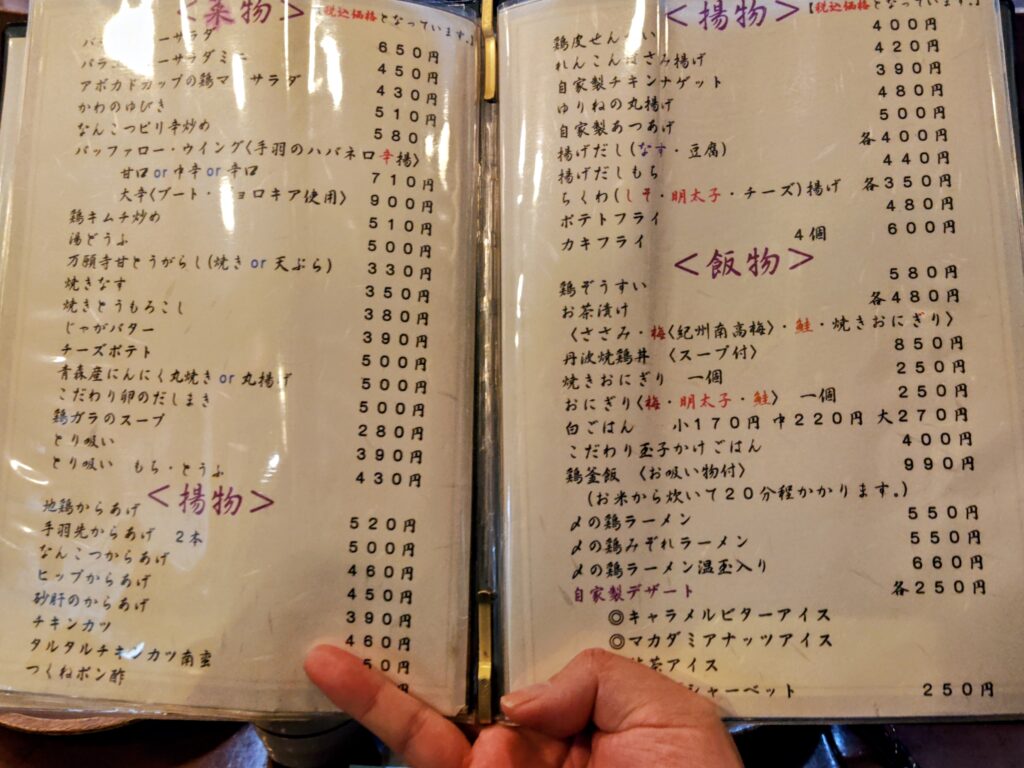 <菜物> 【税込価格となっています。】
ーサラダ 650円
ーサラダミニ 450円
アボカドカップの鶏マ サラダ 430円
かわのゆびき 510円
なんこつピリ辛炒め 580
バッファロー・ウイング〈手羽のハバネロ辛揚〉
甘口or中辛or辛口 710円
大辛〈ブート・ジョロキア使用〉 900円
鶏キムチ炒め 510円
湯どうふ 500円
万願寺甘とうがらし(焼きor天ぷら) 330円
焼きなす 350円
焼きとうもろこし 380円
じゃがバター 390円
チーズポテト 500円
青森産にんにく丸焼きor丸揚げ 500円
こだわり卵のだしまき 500円
鶏ガラのスープ 280円
とり吸い 390円
とり吸い もち・とうふ 430円
<揚物>
地鶏からあげ 520円
手羽先からあげ 2本 500円
なんこつからあげ 460円
ヒップからあげ 450円
砂肝のからあげ 390円
チキンカツ 460円
タルタルチキンカツ南蛮 50円
つくねポン酢
<揚物> 【税込価格となっています。】
鶏皮せんべい 400円
れんこんはさみ揚げ 420円
自家製チキンナゲット 390円
ゆりねの丸揚げ 480円
自家製あつあげ 500円
揚げだし(なす・豆腐) 各400円
揚げだしもち 440円
ちくわ(しそ・明太子・チーズ)揚げ 各350円
ポテトフライ 480円
カキフライ 4個 600円
<飯物>
鶏ぞうすい 580円
お茶漬け 各480円
〈ささみ・梅〈紀州南高梅〉・鮭・焼きおにぎり〉
丹波焼鶏丼 〈スープ付〉 850円
焼きおにぎり 一個 250円
おにぎり〈梅・明太子・鮭〉 一個 250円
白ごはん 小170円 中220円 大270円
こだわり玉子かけごはん 400円
鶏釜飯 〈お吸い物付〉 990円
(お米から炊いて20分程かかります。)
〆の鶏ラーメン 550円
〆の鶏みぞれラーメン 550円
〆の鶏ラーメン温玉入り 660円
自家製デザート 各250円
◎キャラメルビターアイス
◎マカダミアナッツアイス
茶アイス
シャーベット 250円